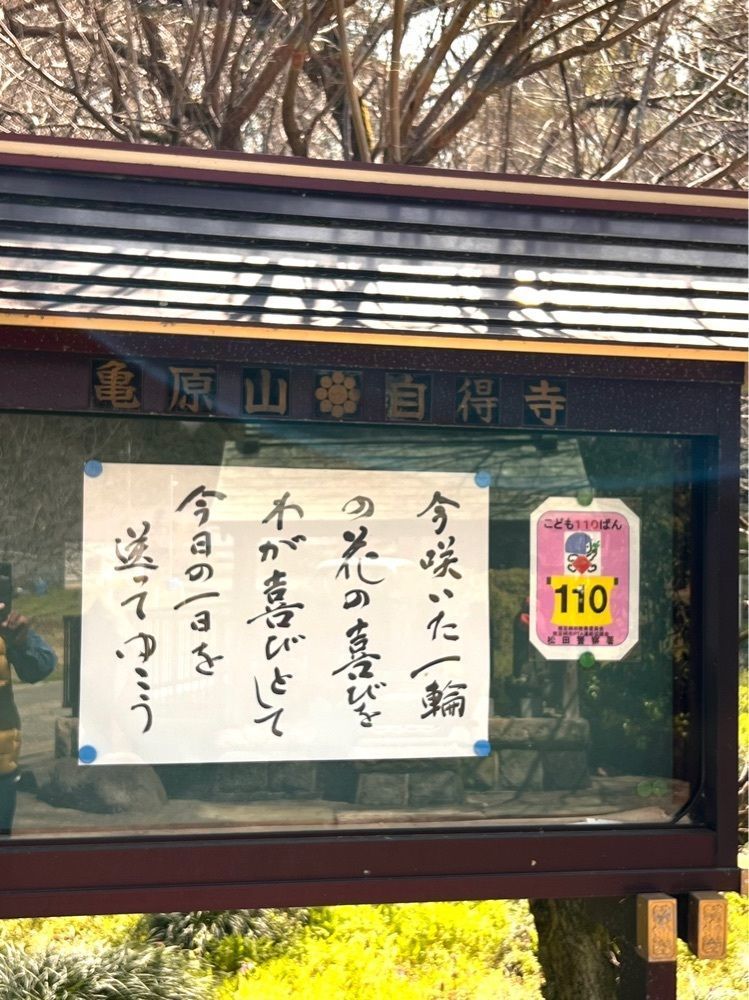 亀原山 自得寺
今咲いた一輪
の花の喜びを
わが喜びとして
今日の一日を
送ってゆこう
こども110ばん
110
松田警察署